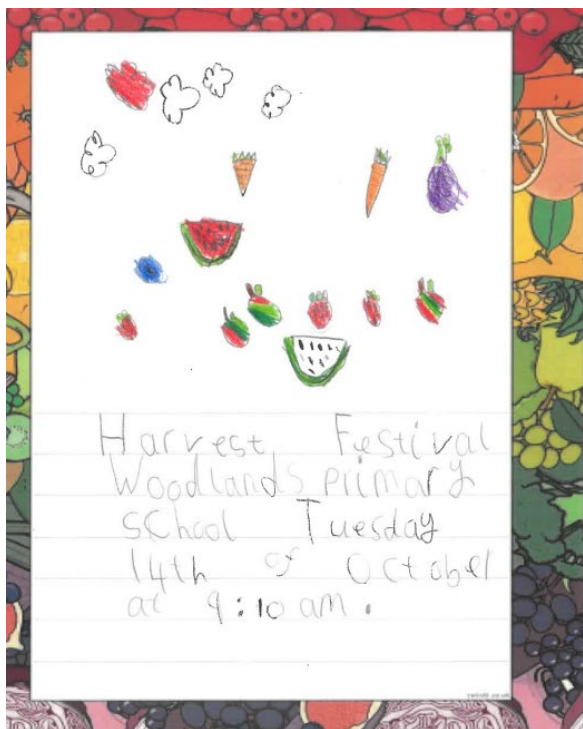 Harvest Festival
Woodlands primary
school Tuesday
14th of October
at 9:10 am.